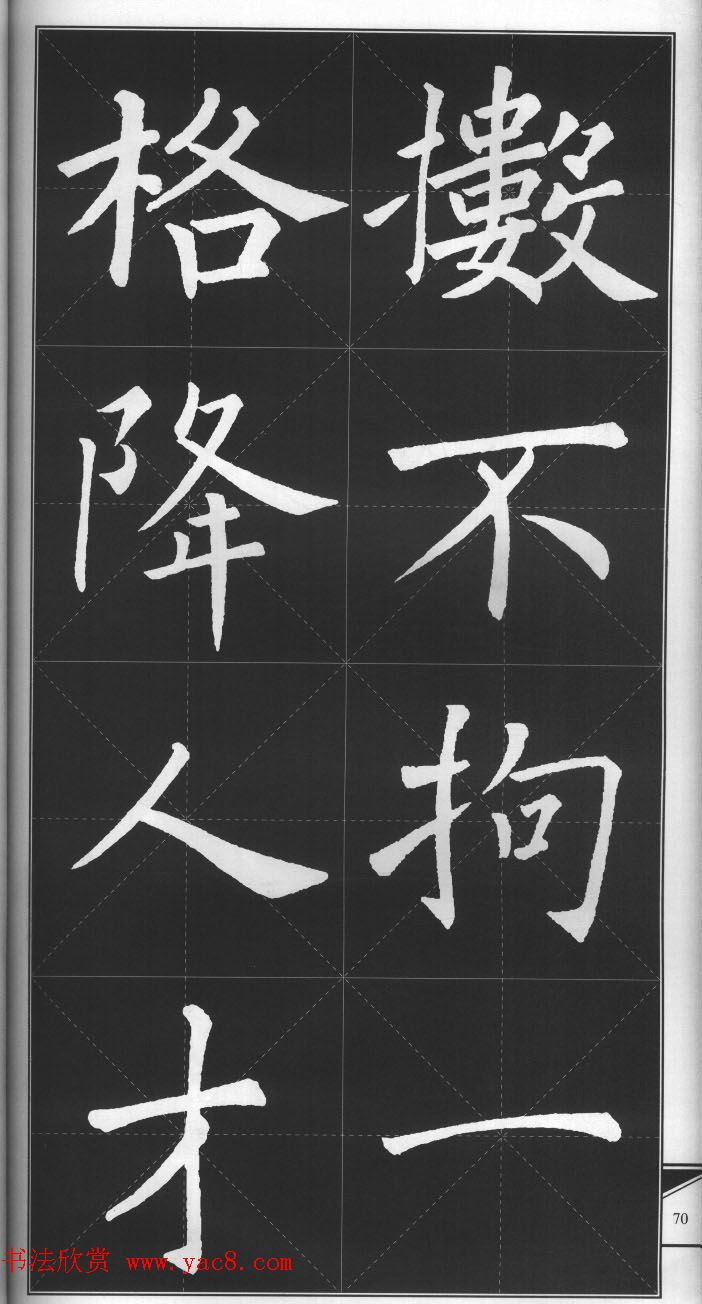 擞不拘一
格降人才
70
书法欣赏 www.yac8.com